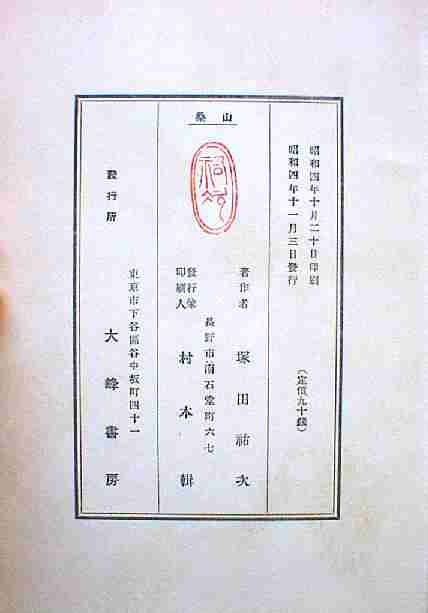 山桑
昭和四年十月二十日印刷
昭和四年十一月三日發行
(定價九十錢)
著作者 塚田祐次
長野市南石堂町六七
發行兼
印刷人 村本輯
東京市下谷區谷中坂町四十一
發行所 大峰書房